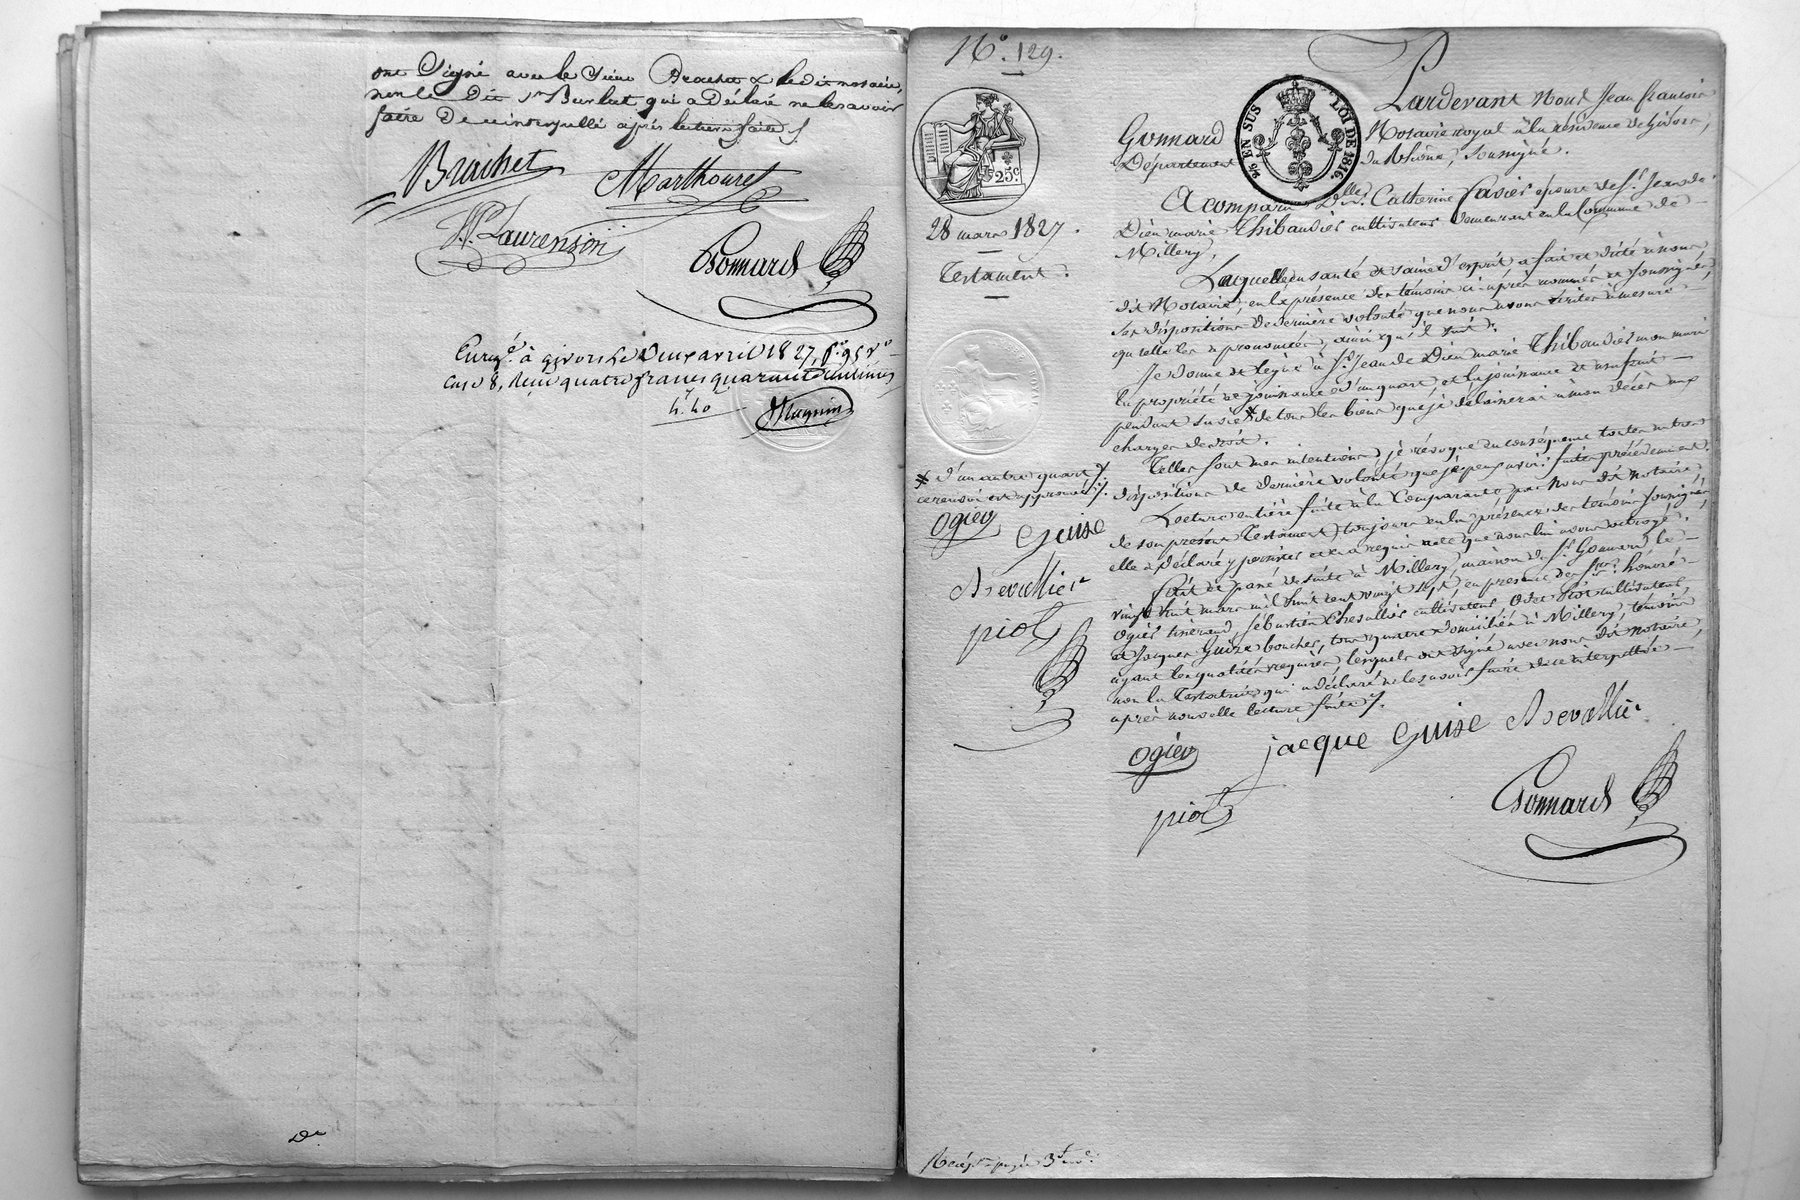 ont Signé avec le Sieur Brachet & ledit notaire,
non le Dit Sr Burlut qui a Déclaré ne le savoir
faire De ce interpellé après lecture faite ./.
Brachet
Marthouret
Laurenson
Gonnard
Enregé à givors le Deux avril 1827, fo 95 vo
Case 8, Reçu quatre francs quarante centimes
4f 40
De
No. 129.
25c
28 mars 1827.
Testament.
95 EN SUS
LOI DE 1816.
Pardevant Nous Jean francois
Gonnard Notaire royal à la résidence de Givors,
Département du Rhône, soussigné.
A comparu Dlle Catherine favier épouse de Sr. Jean de
Dieu marie Thibaudier cultivateur demeurant en la Commune de
Millery,
Laquelle en santé et saine d'esprit a fait et dicté à nous
dit Notaire en la présence des témoins ci-après nommés et soussignés,
ses dispositions de dernière volonté que nous avons écrites à mesure
qu'elle les a prononcées, ainsi qu'il suit.
Je donne et lègue à Sr Jean de Dieu marie Thibaudier mon mari
la propriété et jouissance d'un quart, et la jouissance et usufruit
pendant sa vie * de tous les biens que je délaisserai à mon décès aux
charges de droit.
Telles sont mes intentions, je révoque en conséquence toutes autres
dispositions de dernière volonté que je peux avoir faites précédemment.
Lecture entière faite à la Comparante, par Nous dit notaire,
de son présent Testament, toujours en la présence des témoins soussignés,
elle a déclaré y persister et a requis acte que nous lui avons octroyé.
Fait et passé de suite à Millery, maison du Sr Gonnard, le
vingt huit mars mil huit cent vingt sept, en présence des Srs honoré
Ogier tisserand, Sébastien Chevallier cultivateur, piot cultivateur
et Jacques Guise boucher, tous quatre domiciliés à Millery, témoins
ayant les qualités requises, lesquels ont signé avec nous dit notaire,
non la Testatrice qui a déclaré ne le savoir faire de ce interpellée
après nouvelle lecture faite ./.
* d'un autre quart ./.
ce renvoi est approuvé ./.
Ogier
Guise
Chevallier
piot
Ogier
jacque Guise
Chevallier
piot
Gonnard